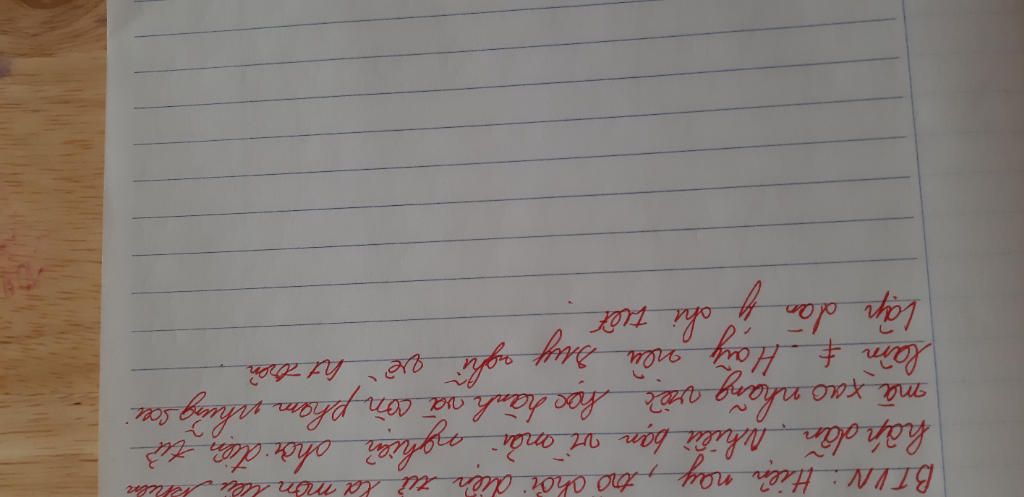 BTVN: Hiện nay, trò chơi điện tử là món tiêu khiển
hấp dẫn. Nhiều bạn vì mải nghiện chơi điện tử
mà xao nhãng việc học hành và còn phạm những sai
lầm ≠. Hãy nêu suy nghĩ về ht trên
Lập dàn ý chi tiết.